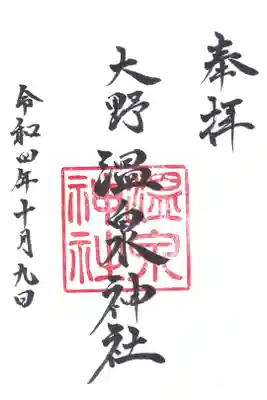 奉拝
大野温泉神社
温泉
神社
令和四年十月九日